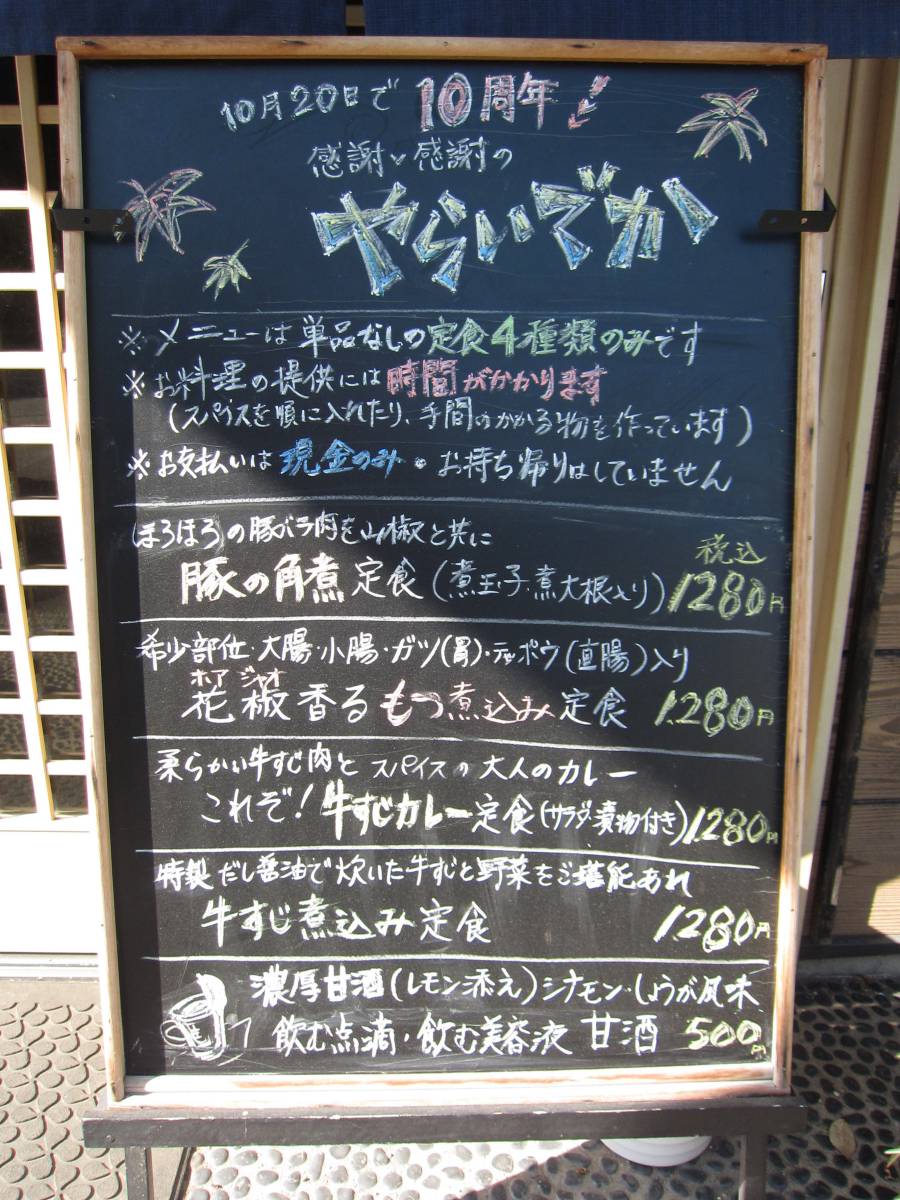 10月20日で10周年!
感謝、感謝の
やらいでか
※メニューは単品なしの定食4種類のみです
※お料理の提供には時間がかかります
(スパイスを順に入れたり、手間のかかる物を作っています)
※お支払いは現金のみ・お持ち帰りはしていません
ほろほろの豚バラ肉を山椒と共に
税込
豚の角煮定食(煮玉子・煮大根入り)1280円
希少部位・大腸・小腸・ガツ(胃)・テッポウ(直腸)入り
ホア ジャオ
花椒香るもつ煮込み定食 1280円
柔らかい牛すじ肉とスパイスの大人のカレー
これぞ!牛すじカレー定食(サラダ・漬物付き)1280円
特製だし醤油で炊いた牛すじと野菜をご堪能あれ
牛すじ煮込み定食 1280円
濃厚甘酒(レモン添え)シナモン・しょうが風味
飲む点滴・飲む美容液 甘酒 500円